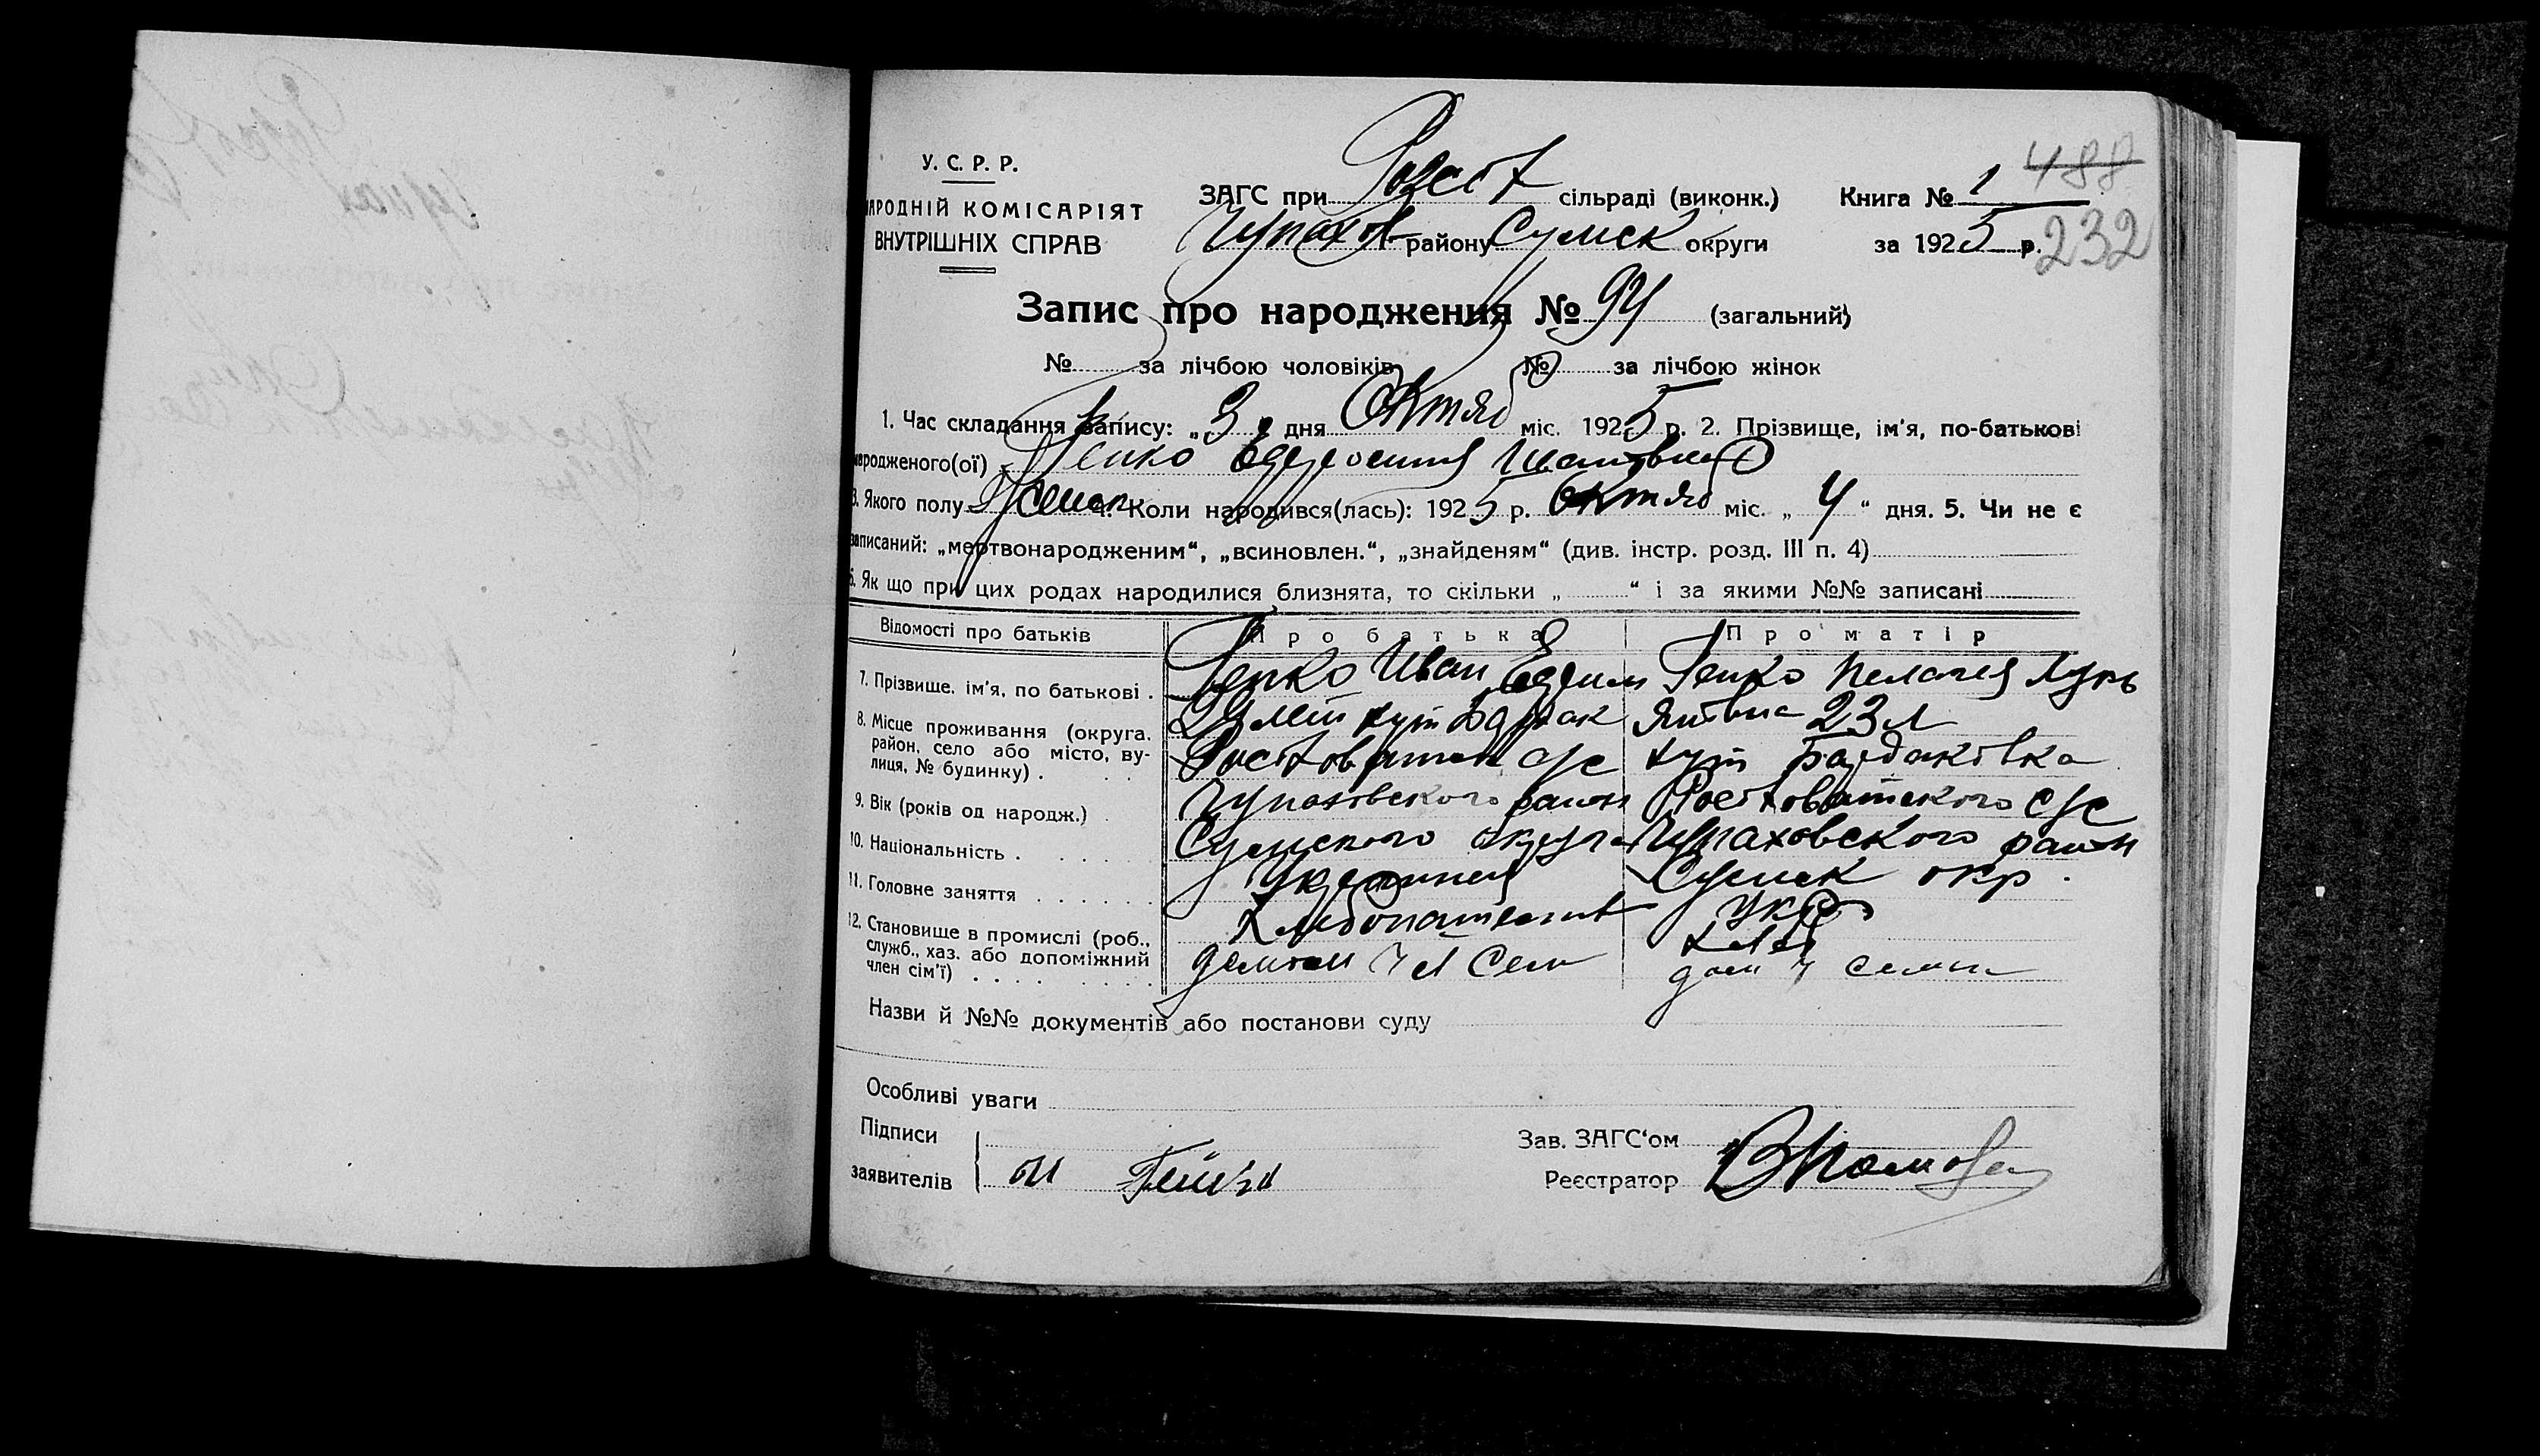 488
У. С. Р. Р.
ЗАГС при Рост сільраді (виконк.) Книга № 1
АРОДНІЙ КОМІСАРІЯТ
Чупахов району Сумск округи за 1925 р. 232
ВНУТРІШНІХ СПРАВ
Запис про народження № 94 (загальний)
№ за лічбою чоловіків № за лічбою жінок
1. Час складання запису: „ 9 „ дня Октяб міс. 1925 р. 2. Прізвище, ім'я, по-батькові
народженого(ої) Гепко Ивановна
3. Якого полу Женск 4. Коли народився(лась): 1925 р. Октяб міс. „ 4 “ дня. 5. Чи не є
записаний: „мертвонародженим“, „всиновлен.“, „знайденям“ (див. інстр. розд. III п. 4)
6. Як що при цих родах народилися близнята, то скільки „ “ і за якими №№ записані
Відомості про батьків Про батька Про матір
7. Прізвище, ім'я, по батькові . Гепко Иван Гепко Пелагея Лукь
8. Місце проживання (округа, хут яновна 23 л
район, село або місто, ву-
лиця, № будинку) . с/с хут Байдаковка
9. Вік (років од народж.) . Чупаховского район с/с
10. Національність . Сумского округа Чупаховского район
11. Головне заняття Украинец Сумск окр.
12. Становище в промислі (роб., Хлебопашест Укр
служб., хаз. або допоміжний хлеб
член сім'ї) ч Сем дом ч семьи
Назви й №№ документів або постанови суду
Особливі уваги
Підписи
Зав. ЗАГС'ом
заявителів
Реєстратор